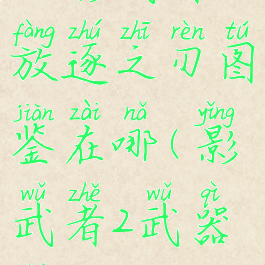 fàng zhú zhī rèn tú
放逐之刃图
jiàn zài nǎ yǐng
鉴在哪(影
wǔ zhě wǔ qì
武者2武器